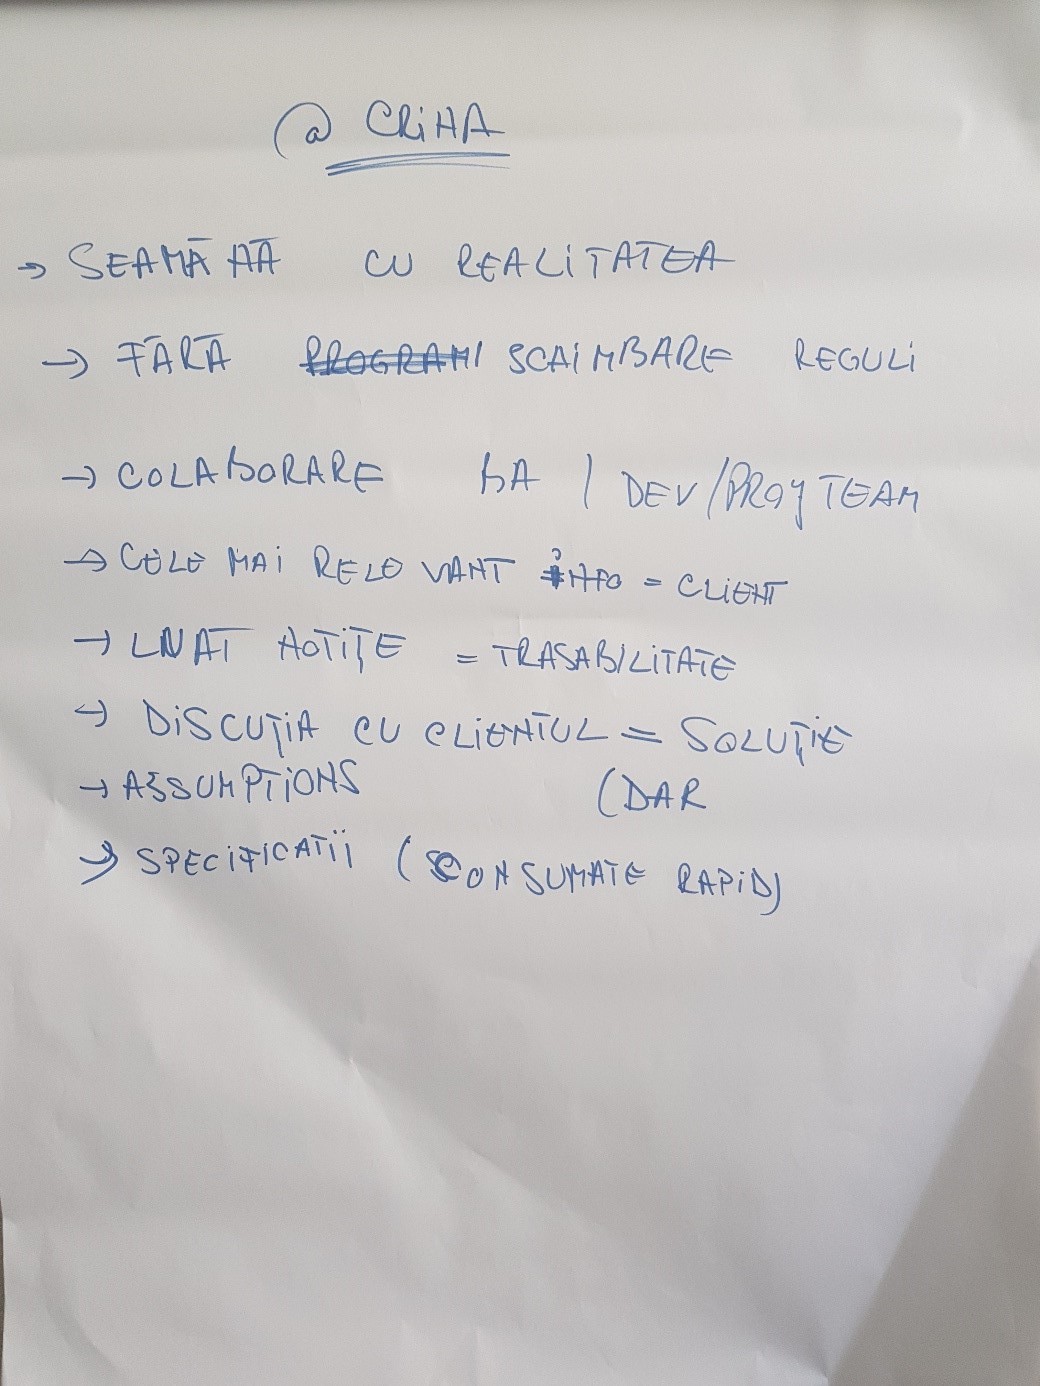 @ CRiHA
→ SEAMĂNĂ CU REALITATEA
→ FĂRĂ PROGRAMI SCAIMBARE REGULI
→ COLABORARE BA / DEV/PROJ TEAM
→ CELE MAI RELEVANT iNFO = CLIENT
→ LUAT NOTIȚE = TRASABILITATE
→ DISCUȚIA CU CLIENTUL = SOLUȚIE
→ ASSUMPTIONS (DAR
→ SPECIFICATII (CONSUMATE RAPID)